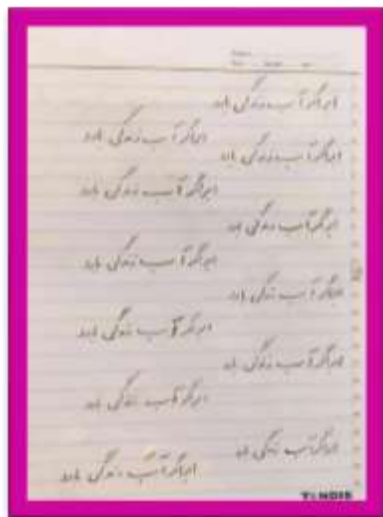 ابر اگر آب زندگی بارد
ابر اگر آب زندگی بارد
ابر اگر آب زندگی بارد
ابر اگر آب زندگی بارد
ابر اگر آب زندگی بارد
ابر اگر آب زندگی بارد
ابر اگر آب زندگی بارد
ابر اگر آب زندگی بارد
ابر اگر آب زندگی بارد
ابر اگر آب زندگی بارد
ابر اگر آب زندگی بارد
ابر اگر آب زندگی بارد
TANDIS